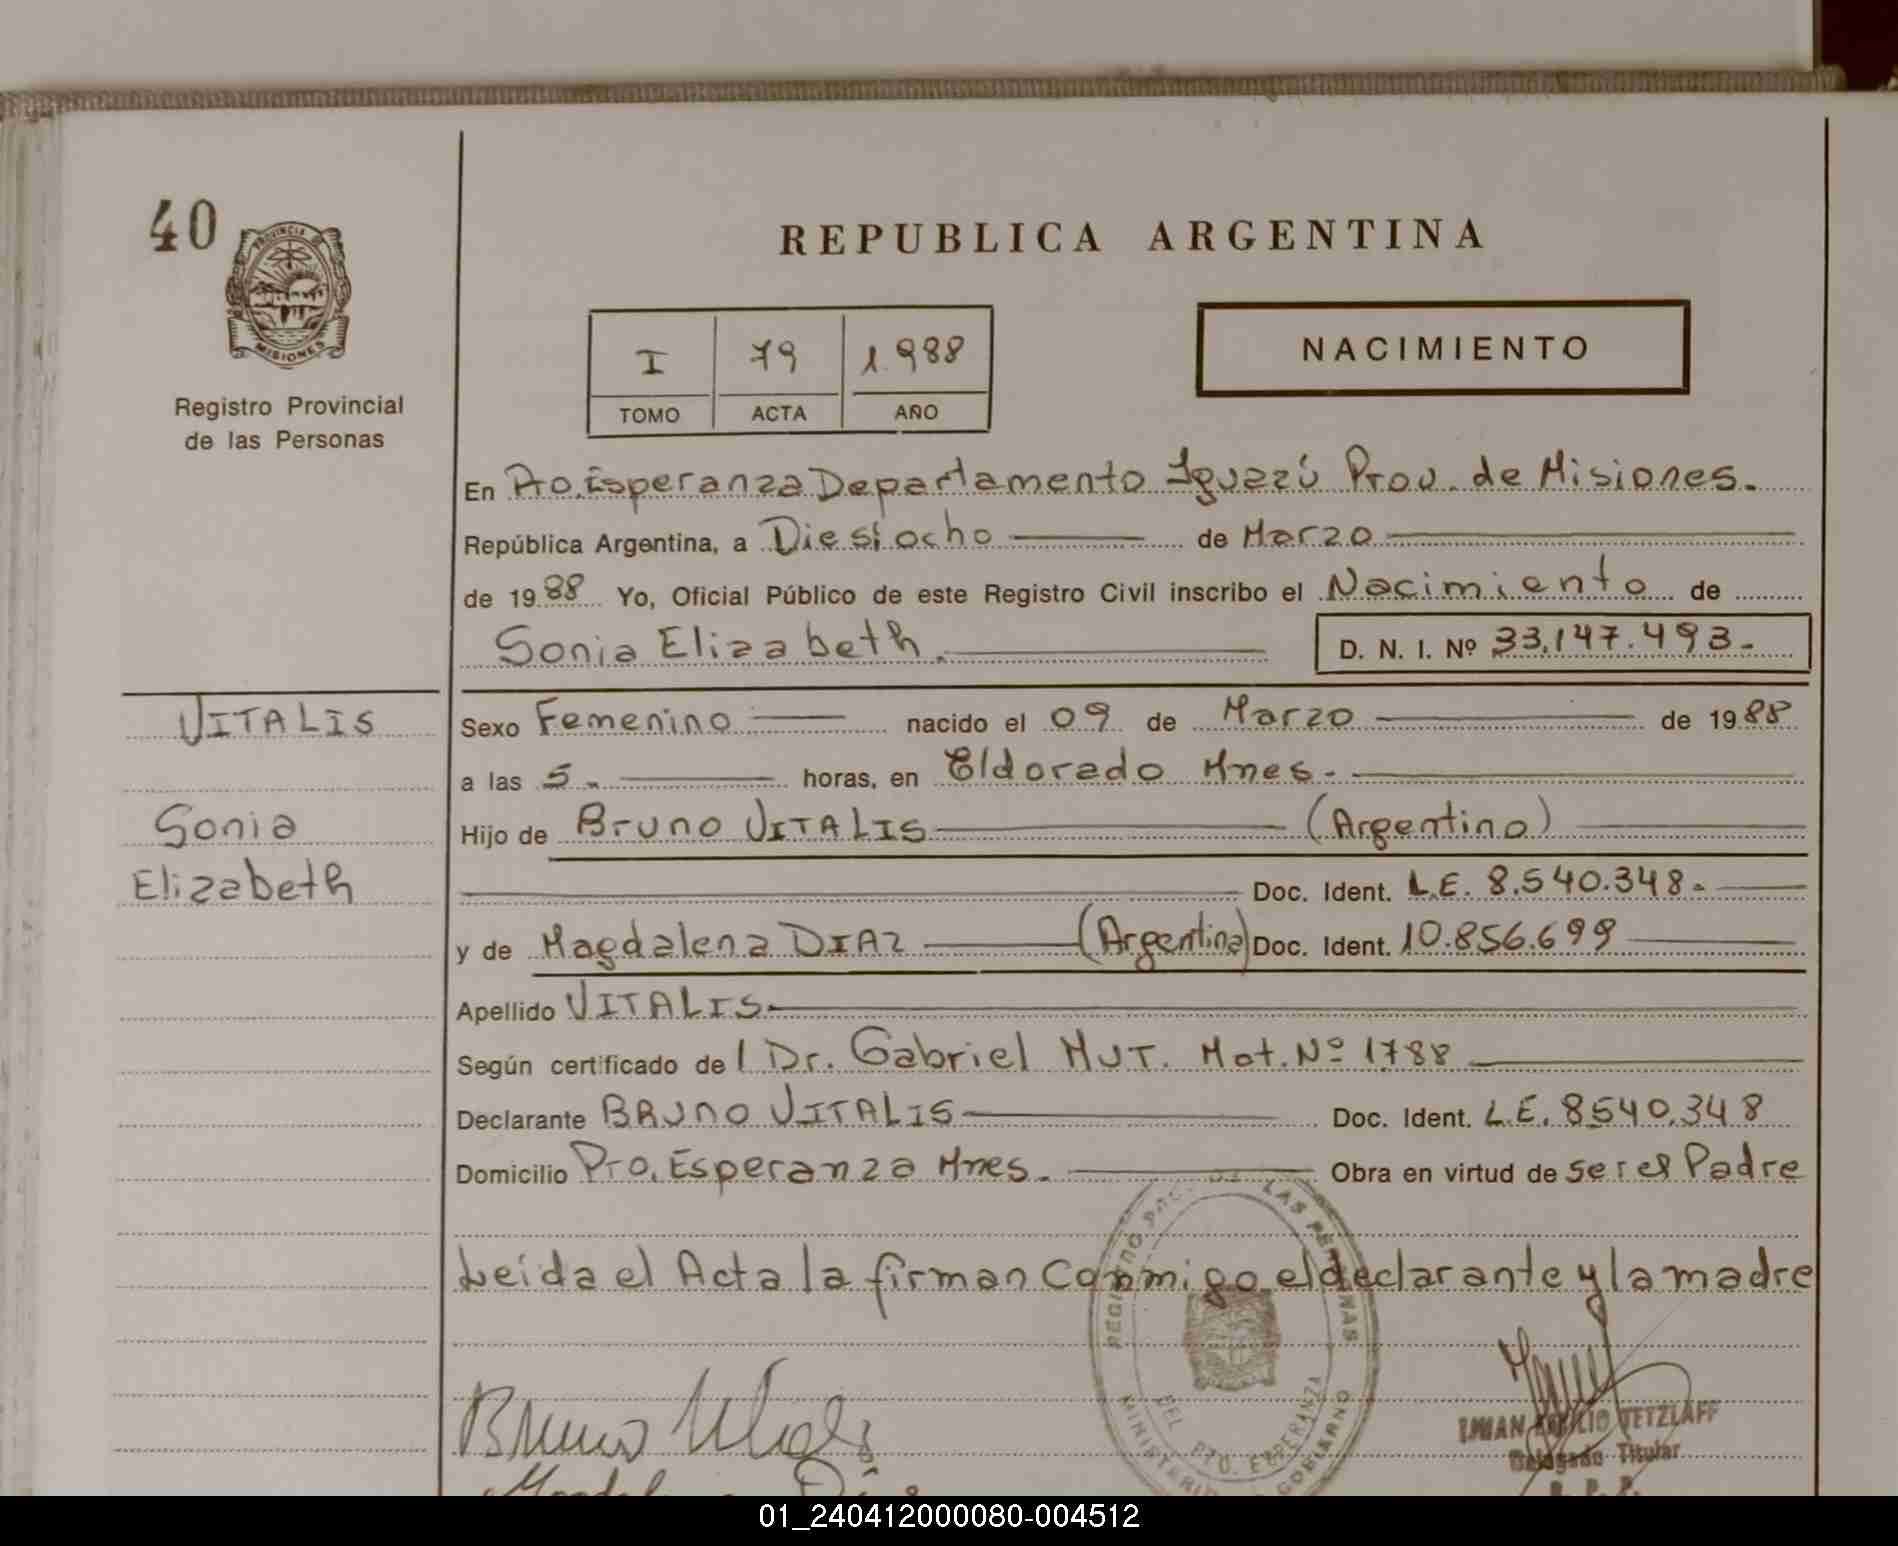 40
PROVINCIA DE
MISIONES
Registro Provincial
de las Personas
REPUBLICA ARGENTINA
I 79 1.988
TOMO ACTA AÑO
NACIMIENTO
En Pto. Esperanza Departamento Iguazú Prov. de Misiones.
República Argentina, a Diesiocho de Marzo
de 1988 Yo, Oficial Público de este Registro Civil inscribo el Nacimiento de
Sonia Elizabeth. D. N. I. Nº 33.147.493.-
VITALIS
Sonia
Elizabeth
Sexo Femenino nacido el 09 de Marzo de 1988
a las 5.- horas, en Eldorado Mnes.-
Hijo de Bruno VITALIS (Argentino)
Doc. Ident. L.E. 8.540.348.-
y de Magdalena DIAZ (Argentina) Doc. Ident. 10.856.699
Apellido VITALIS.-
Según certificado de l Dr. Gabriel MUT. Mat. Nº 1788
Declarante BRUNO VITALIS Doc. Ident. L.E. 8540.348
Domicilio Pto. Esperanza Mnes. Obra en virtud de ser el Padre
Leída el Acta la firman conmigo el declarante y la madre
REGISTRO PROV. DE LAS PERSONAS
DEL. PTO. ESPERANZA
MINISTERIO DE GOBIERNO
Bruno Vitalis
TETZLAFF
Delegado Titular
R. P. P.
01_240412000080-004512